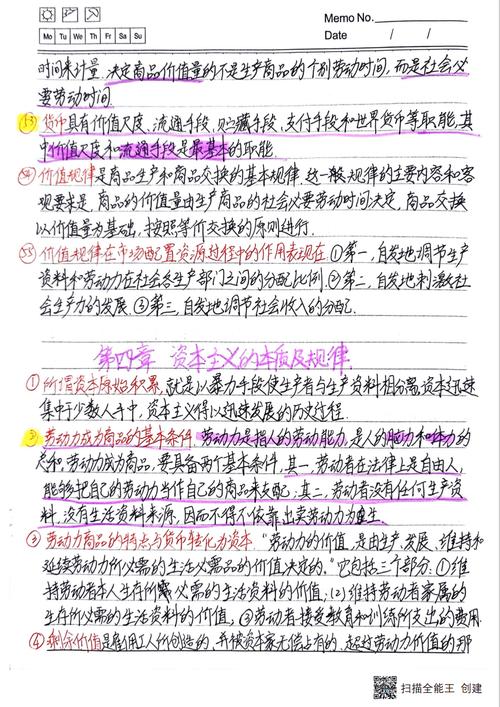 Memo No.
Mo Tu We Th Fr Sa Su
Date / /
时间来计量.决定商品价值量的不是生产商品的个别劳动时间,而是社会必
要劳动时间.
53 货币具有价值尺度、流通手段、贮藏手段、支付手段和世界货币等职能,其
中价值尺度和流通手段是最基本的职能.
54 价值规律是商品生产和商品交换的基本规律.这一般规律的主要内容和客
观要求是,商品的价值量由生产商品的社会必要劳动时间决定,商品交换
以价值量为基础,按照等价交换的原则进行.
55 价值规律在市场配置资源过程中的作用表现在①第一,自发地调节生产
资料和劳动力在社会各生产部门之间的分配比例.②第二,自发地刺激社
会生产力的发展.③第三,自发地调节社会收入的分配.
第四章 资本主义的本质及规律.
① 所谓资本原始积累,就是以暴力手段使生产者与生产资料相分离,资本迅速
集中于少数人手中,资本主义得以迅速发展的历史过程.
劳动力成为商品的基本条件.劳动力是指人的劳动能力,是人的脑力和体力的
总和,劳动力成为商品,要具备两个基本条件,其一,劳动者在法律上是自由人,
能够把自己的劳动力当作自己的商品来支配,其二,劳动者没有任何生产资
料,没有生活资料来源,因而不得不依靠出卖劳动力为生.
③ 劳动力商品的特点与货币转化为资本."劳动力的价值,是由生产、发展、维持和
延续劳动力所必需的生活必需品的价值决定的."它包括三个部分.①维
持劳动者本人生存所需必需的生活资料的价值,(2)维持劳动者家属的
生存所必需的生活资料的价值,③劳动者接受教育和训练所支出的费用.
④ 剩余价值是雇佣工人所创造的,并被资本家无偿占有的,超过劳动力价值的那
扫描全能王 创建